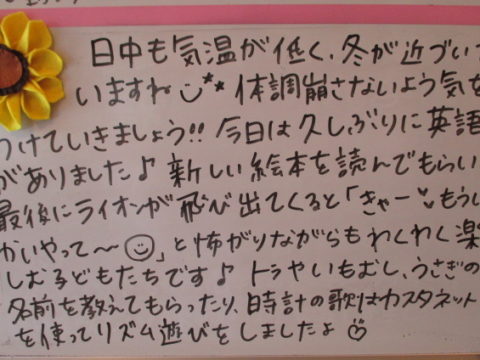 日中も気温が低く、冬が近づいて
いますね 体調崩さないよう気を
つけていきましょう!! 今日は久しぶりに英語
がありました♪ 新しい絵本を読んでもらい
最後にライオンが飛び出てくると「きゃー もうい
かいやって〜☺」と怖がりながらもわくわく楽
しむ子どもたちです♪ トラやいもむし、うさぎの
名前を教えてもらったり、時計の歌はカスタネット
を使ってリズム遊びをしましたよ